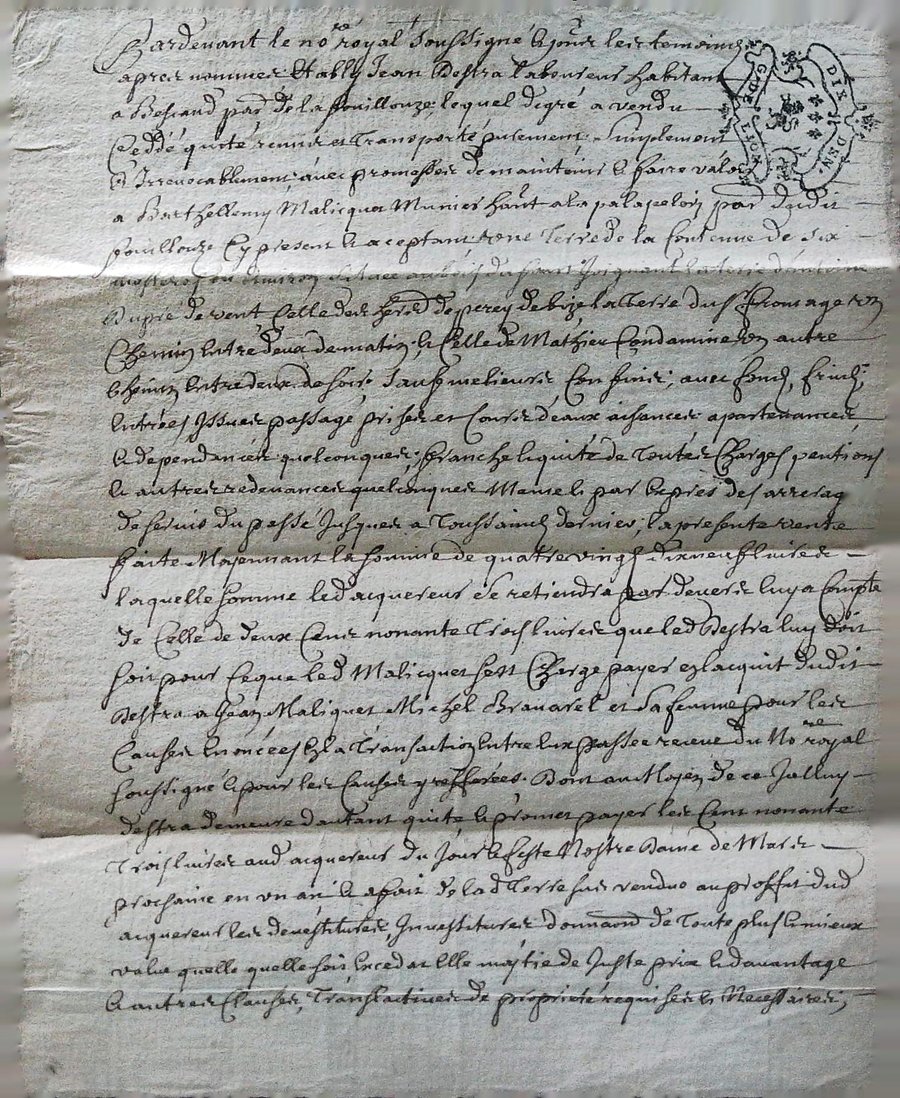 Pardevant le no.re royal soussigné & p̃nts les temoins
apres nommes Estably Jean Destra laboureur habitant
a par. de la fouillouze, lequel de gré a vendu
Ceddé quité remis et Transporté purement, simplement
& Irrevocablement, avec promesses de maintenir & faire valoir
a Barthellemy Malicquet Munier hãnt a la par. dudit
fouillouze Cy present & aceptant, une Terre de la Contenue de six
situee joignant la terre
Dupré de vent Celle des her. de de bize la Terre du Sr fromage un
Chemin Entre deux de matin, & Celle de Mathieu Condamine un autre
Chemin Entre deux de soir. sauf melieures Confins, avec fond, fruid,
Entrées Issues passage prises et Cours d'eaux aisances apartenances
& dependances quelconques, franche & quitte de Toutes Charges pentions
& autres redevances quelconques Mesme & par Exprés des arrerag
de servis du passé Jusques a Toussaincts dernier; la presente vente
faite Moyennant la somme de quatre vingt dixneuf livres
laquelle somme led acquereur se retiendra par devers luy a Compte
de Celle de deux Cens nonante Trois livres que led Destra luy doit
soit pour Ce que led Malicquet sest Chargé payer en lacquit dudit
Destra a Jean Maliquet Michel et sa femme pour les
Causes Enoncées En la Transaction Entre Eux passee receue du No.re royal
soussigné & pour les Causes y refferées. Dont au Moyen de ce Jalluy
destra demeure dautant quite & promet payer les Cent nonante
Trois livres aud acquereur du Jour & feste Nostre Dame de Mars
prochaine en un an & apois de lad Terre sus vendue au proffit dud
acquereur les devestitures, Investitures donnaõn de Toute plus & mieux
value quelle quelle soit Exceda Elle moytie de Juste prix & davantage
& autres Clauses, Translatives de proprieté requises & Necessaires,
GNALITE LYON
DIX DEN.